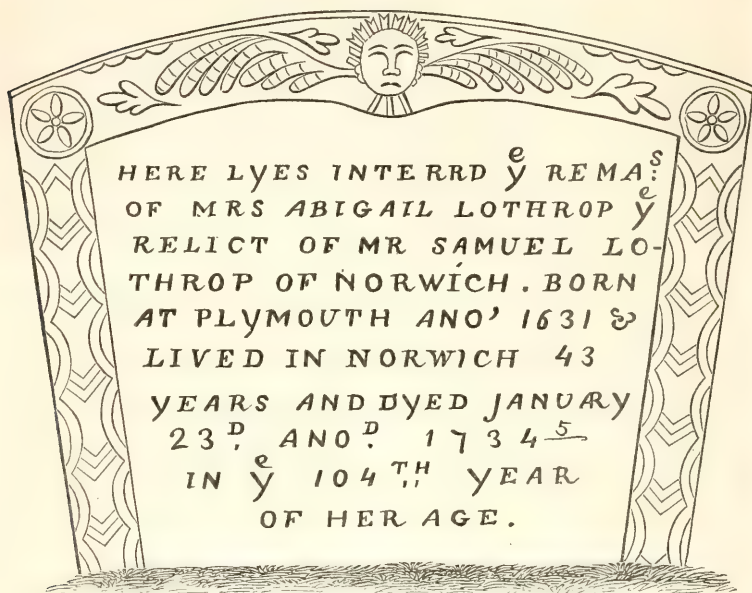 HERE LYES INTERRD yᵉ REMAˢ:
OF MRS ABIGAIL LOTHROP yᵉ
RELICT OF MR SAMUEL LO-
THROP OF NORWÍCH. BORN
AT PLYMOUTH ANO' 1631 &
LIVED IN NORWICH 43
YEARS AND DYED JANUARY
23ᴰ. ANOᴰ. 1734⁵
IN yᵉ 104ᵀᴴ YEAR
OF HER AGE.